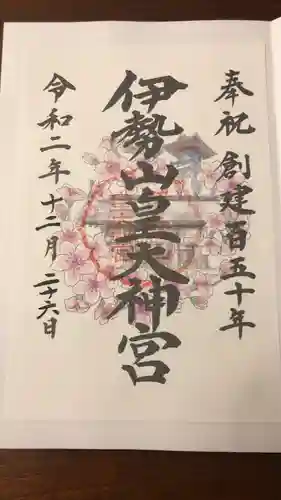 奉祝 創建百五十年
伊勢山皇大神宮
令和二年十二月二十六日